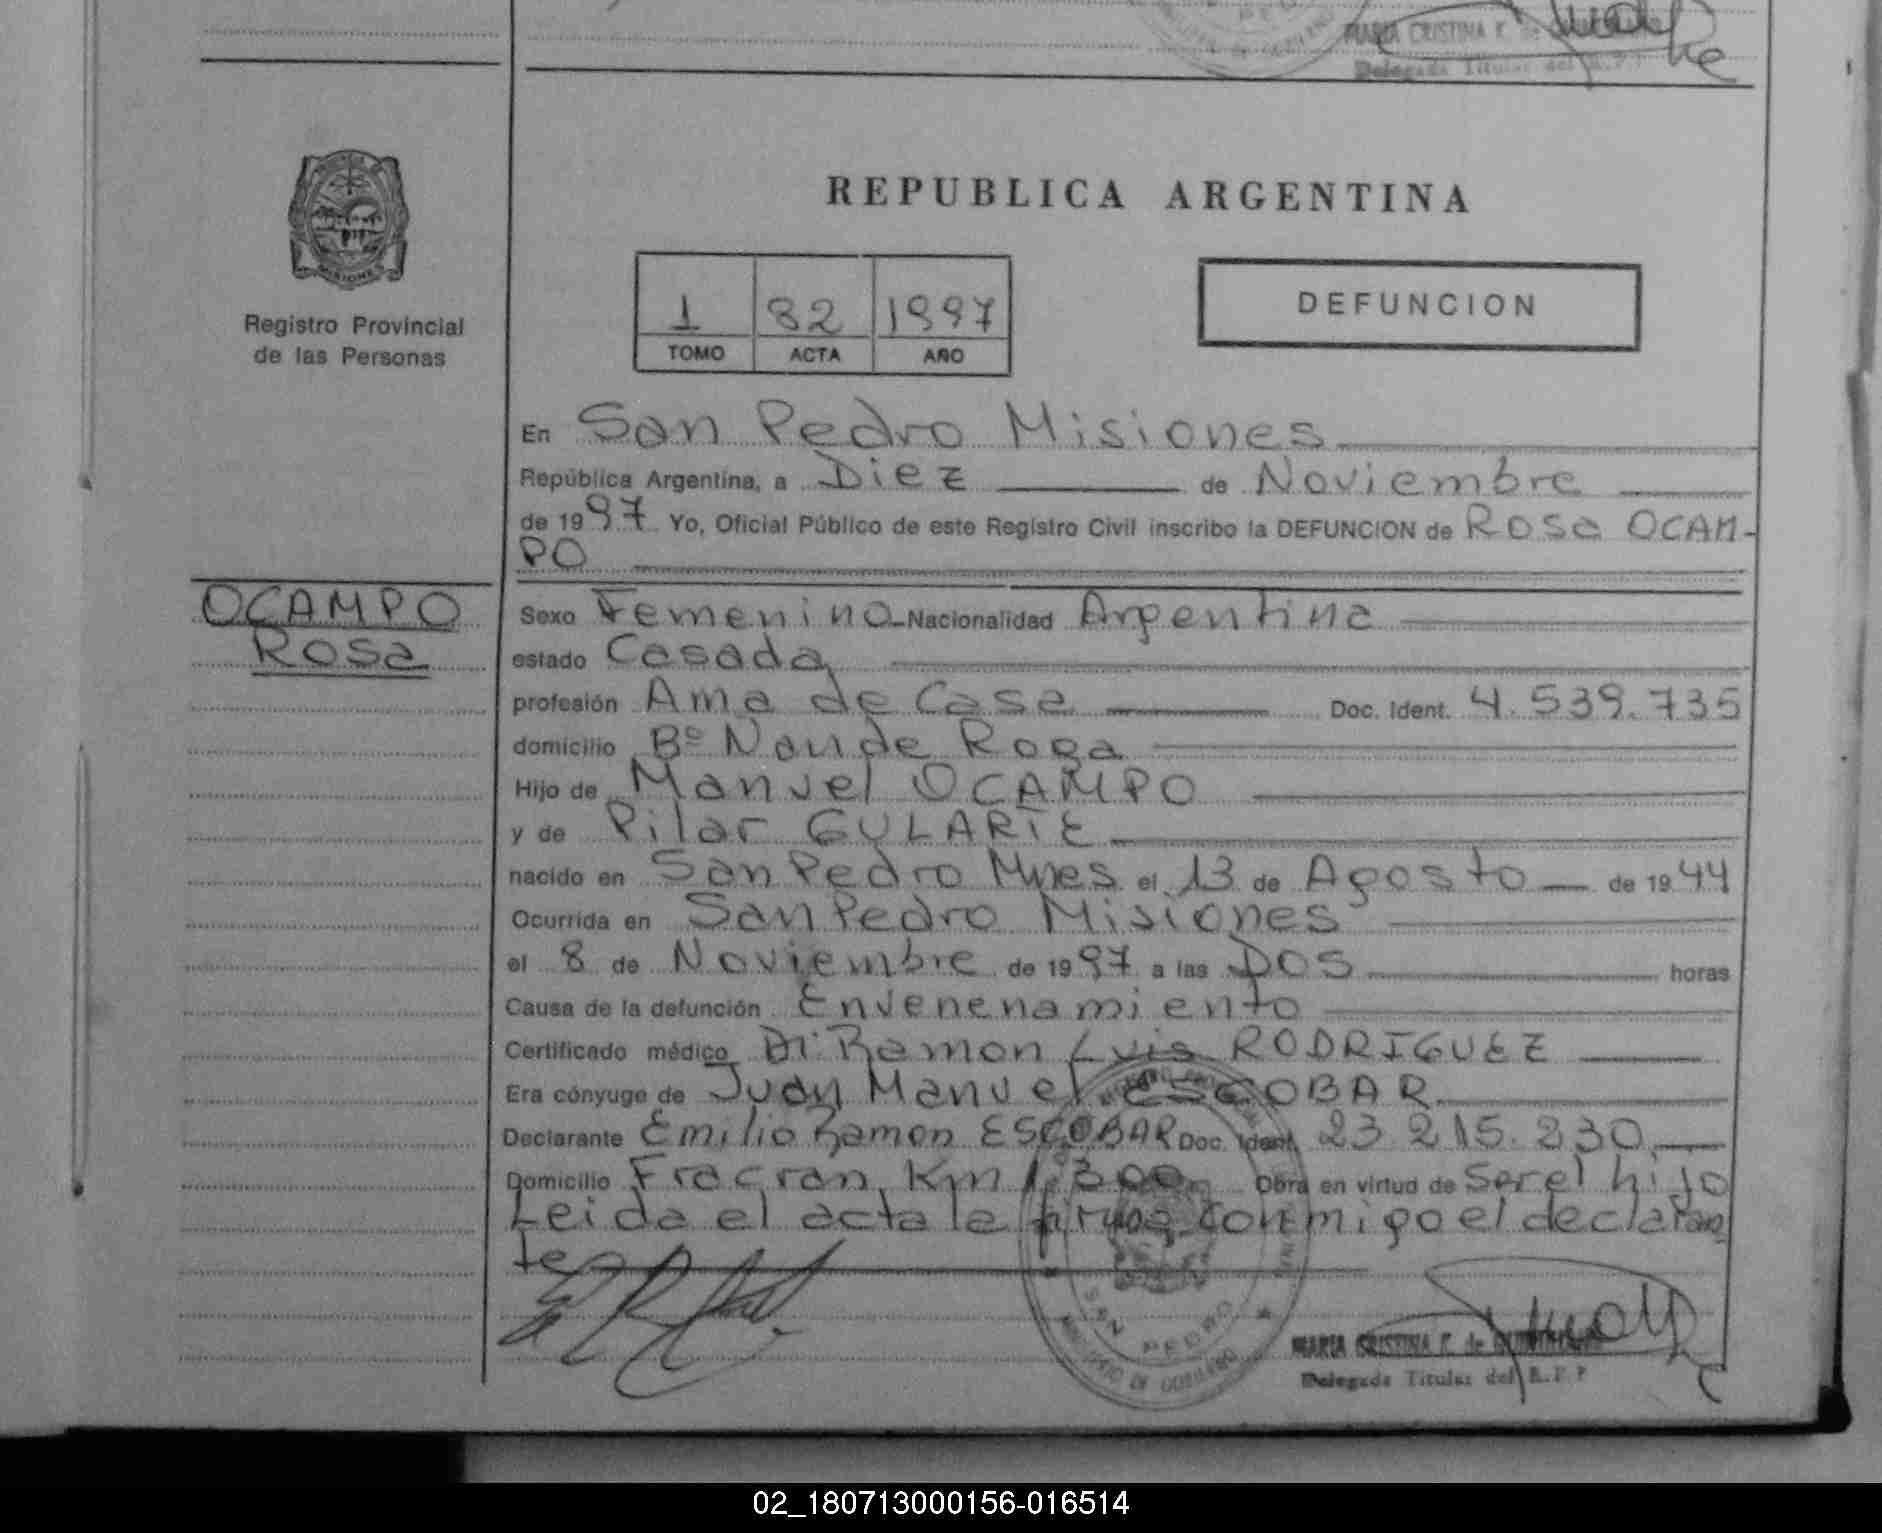 MARIA CRISTINA F. de
Delegada Titular del R.P.P
REPUBLICA ARGENTINA
MISIONES
Registro Provincial
de las Personas
1 82 1997
TOMO ACTA AÑO
DEFUNCION
En San Pedro Misiones
República Argentina, a Diez de Noviembre
de 1997 Yo, Oficial Público de este Registro Civil inscribo la DEFUNCION de Rosa OCAM-
PO
OCAMPO
Rosa
Sexo Femenino Nacionalidad Argentina
estado Casada
profesión Ama de Casa Doc. Ident. 4.539.735
domicilio Bº Nande Roga
Hijo de Manuel OCAMPO
y de Pilar GULARTE
nacido en San Pedro Mnes el 13 de Agosto de 1944
Ocurrida en San Pedro Misiones
el 8 de Noviembre de 1997 a las Dos horas
Causa de la defunción Envenenamiento
Certificado médico Dr. Ramon Luis RODRIGUEZ
Era cónyuge de Juan Manuel ESCOBAR
Declarante Emilio Ramon ESCOBAR Doc. Ident. 23.215.230
Domicilio Fracran Km 1.300 Obra en virtud de Ser el hijo
Leida el acta la firma conmigo el declaran
te
SAN PEDRO
MINISTERIO DE GOBIERNO
MARIA CRISTINA F. de
Delegada Titular del R.P.P
02_180713000156-016514